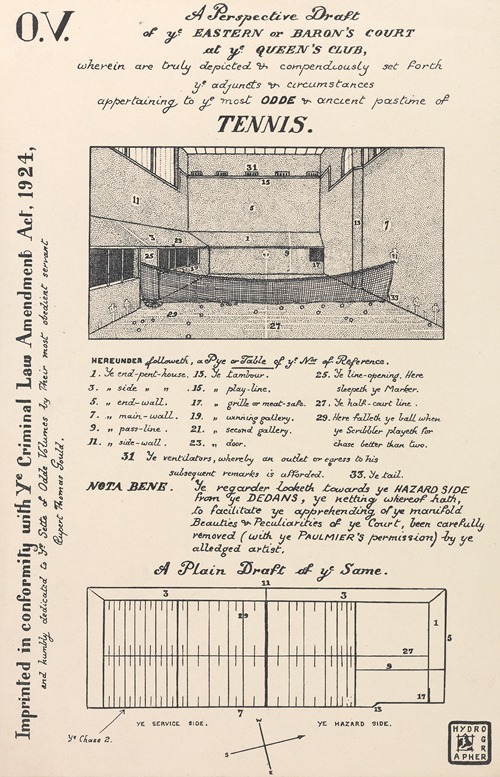 O.V.
A Perspective Draft
of yᵉ EASTERN or BARON'S COURT
at yᵉ QUEEN'S CLUB,
wherein are truly depicted & compendiously set forth
yᵉ adjuncts & circumstances
appertaining to yᵉ most ODDE & ancient pastime of
TENNIS.
31
15
11
5
7
3
23
1
25
9
17
33
29
27
HEREUNDER followeth, a Pye or Table of yᵉ Nᵒˢ of Reference.
1. Yᵉ end-pent-house. 13. Yᵉ Lambour. 25. Yᵉ line-opening. Here
3. " side " " . 15. " play-line. sleepeth yᵉ Marker.
5. " end-wall. 17. " grille or meat-safe. 27. Yᵉ half-court line.
7. " main-wall. 19. " winning gallery. 29. Here falleth yᵉ ball when
9. " pass-line. 21. " second gallery. yᵉ Scribbler playeth for
11. " side-wall. 23. " door. chase better than two.
31 Yᵉ ventilators, whereby an outlet or egress to his
subsequent remarks is afforded. 33. Yᵉ tail.
NOTA BENE. Yᵉ regarder looketh towards yᵉ HAZARD SIDE
from yᵉ DEDANS, yᵉ netting whereof hath,
to facilitate yᵉ apprehending of yᵉ manifold
Beauties & Peculiarities of yᵉ Court, been carefully
removed (with yᵉ PAULMIER'S permission) by yᵉ
alledged artist.
A Plain Draft of yᵉ Same.
11
3
3
29
1
5
27
9
17
7
13
YE SERVICE SIDE.
YE HAZARD SIDE.
Yᵉ Chase 2.
W
S
E
HYDRO
GR
APHER
Imprinted in conformity with Yᵉ Criminal Law Amendment Act, 1924,
and humbly dedicated to Yᵉ Sette of Odde Volumes by Their most obedient servant
Rupert Thomas Gould.